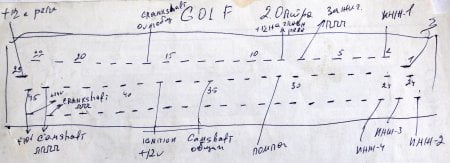 +12 в реле
crankshaft
общий
GOLF
2 Опира
+12н главн
реле
Зажиг.
ИНЖ-1
3
22 20 15 10 5 2 1
23
45 40 35 30 24 24
crankshaft
Camshaft
IGNITION
+12v
Camshaft
общий
помпа
ИНЖ-4
ИНЖ-3
ИНЖ-2